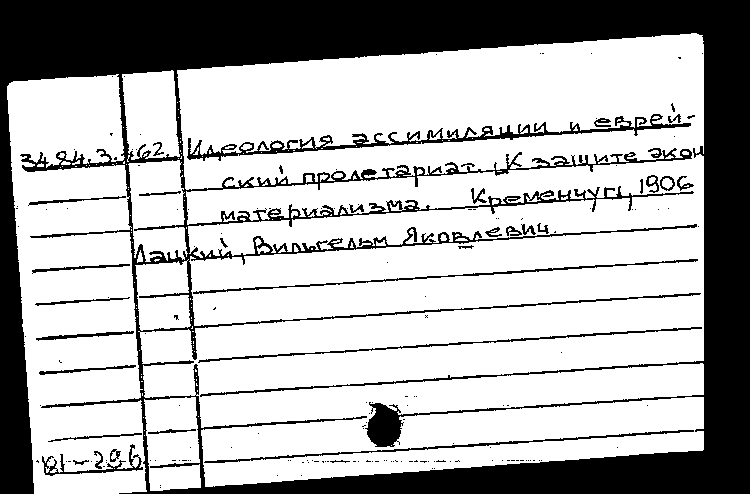 34.84.3.462. Идеология ассимиляции и еврей-
ский пролетариат. (К защите экон
материализма. Кременчуг, 1906
Лацкий, Вильгельм Яковлевич
'81-296